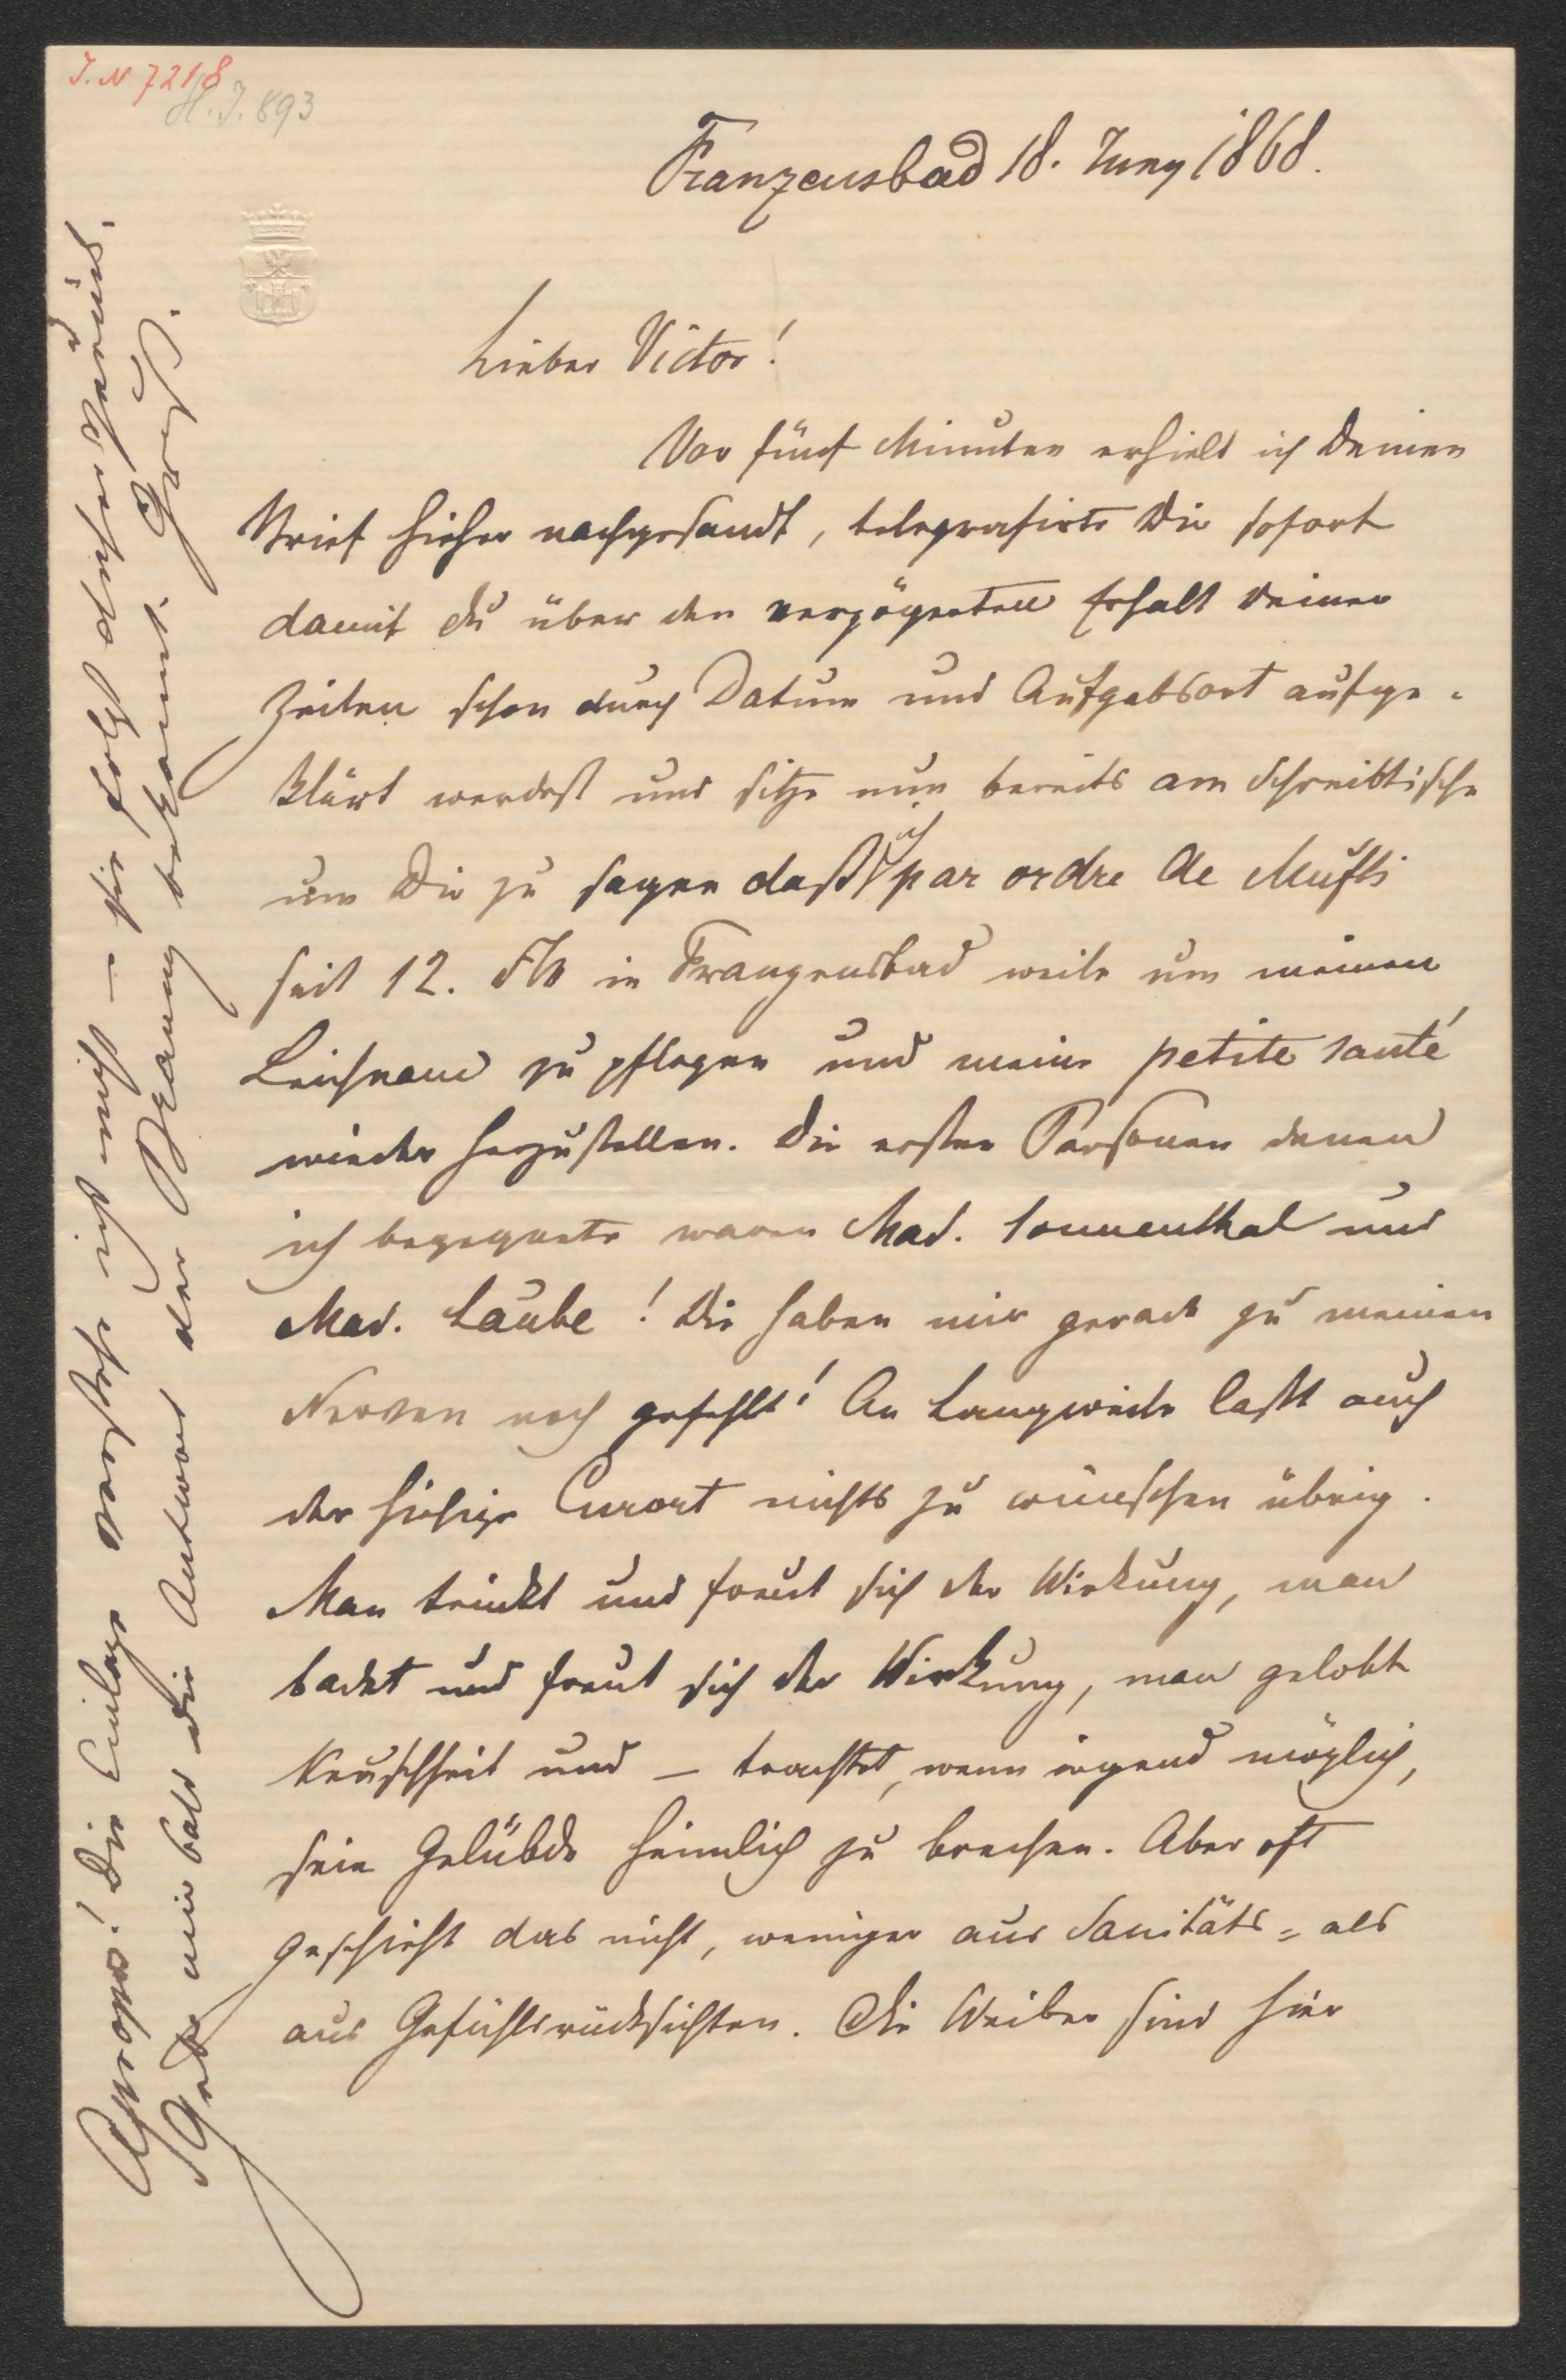 J. N 7218
H. J. 893
Franzensbad 18. Juny 1868.
Lieber Victor!
Vor fünf Minuten erhielt ich Deinen
Brief hieher nachgesandt, telegrafirte Dir sofort
damit Du über den verzögerten Erhalt Deiner
Zeilen schon durch Datum und Aufgabsort aufge-
klärt werdest und sitze nun bereits am Schreibtische
um Dir zu sagen daß ich par ordre de Mufti
seit 12. in Franzensbad weile um meinen
Leichnam zu pflegen und meine petite santé
wieder herzustellen. Die ersten Personen denen
ich begegnete waren Mad. Sonnenthal und
Mad. Laube! Die haben mir gerade zu meinen
Nerven noch gefehlt! An Langweile laßt auch
der hiesige Curort nichts zu wünschen übrig.
Man trinkt und freut sich der Wirkung, man
badet und freut sich der Wirkung, man gelobt
Keuschheit und – trachtet, wenn irgend möglich,
sein Gelübde heimlich zu brechen. Aber oft
geschieht das nicht, weniger aus Sanitäts= als
aus Gefühlsrücksichten. Die Weiber sind hier
Apropos! Die Einlage verstehe ich nicht – sie folgt daher zurück.
Gebe mir bald die Antwort der bekannt.